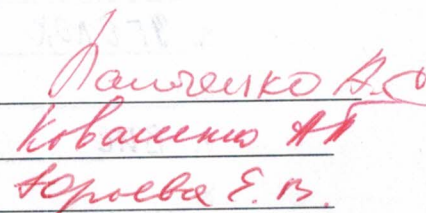 Панченко А.С
Коваленко АП
Юрьева Е.В.